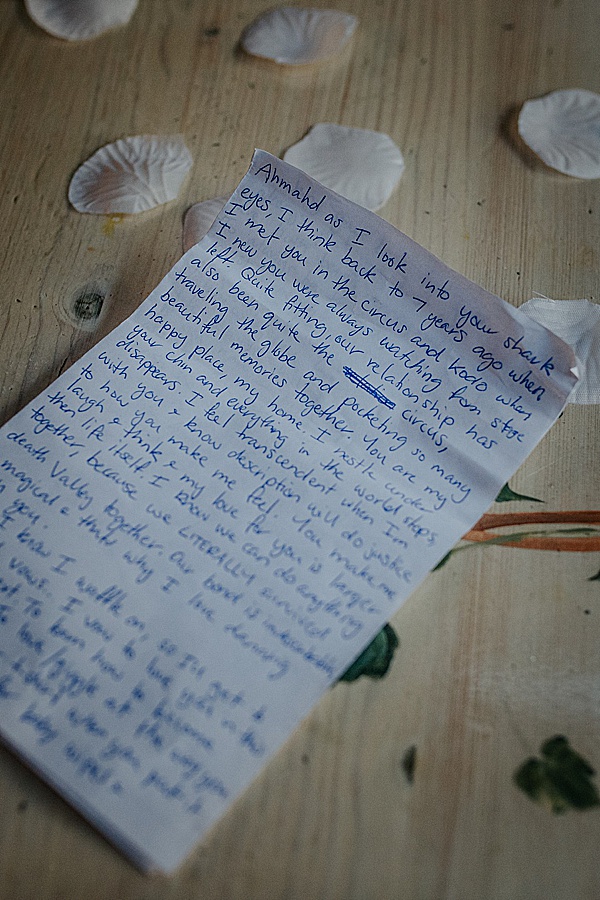 Ahmahd as I look into your shark
eyes, I think back to 7 years ago when
I met you in the circus and Kodo when
I new you were always watching from stge
left. Quite fitting, our relationship has
also been quite the circus,
traveling the globe and pocketing so many
beautiful memories together. You are my
happy place my home. I nestle under
your chin and everything in the world stops,
disappears. I feel transcendent when I'm
with you & know description will do justice
to how you make me feel. You make me
laugh & think & my love for you is larger
then life itself. I know we can do anything
together, because we LITERALLY survived
death Valley together. Our bond is
magical & thats why I love
you.
I know I waffle on, so I'll get to
vows. I vow to love you in this
to learn how to become
love/giggle at the way you
when you
baby wipes &